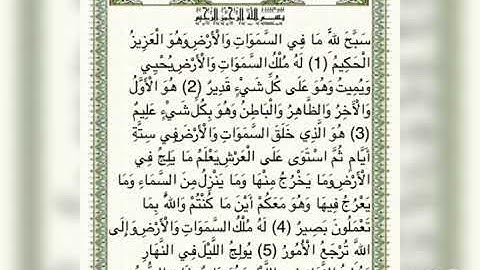 بسم الله الرحمن الرحيم
سَبَّحَ لِلَّهِ مَا فِي السَّمَوَاتِ وَالْأَرْضِ وَهُوَ الْعَزِيزُ
الْحَكِيمُ (1) لَهُ مُلْكُ السَّمَوَاتِ وَالْأَرْضِ يُحْيِي
وَيُمِيتُ وَهُوَ عَلَى كُلِّ شَيْءٍ قَدِيرٌ (2) هُوَ الْأَوَّلُ
وَالْآخِرُ وَالظَّاهِرُ وَالْبَاطِنُ وَهُوَ بِكُلِّ شَيْءٍ عَلِيمٌ
(3) هُوَ الَّذِي خَلَقَ السَّمَوَاتِ وَالْأَرْضَ فِي سِتَّةِ
أَيَّامٍ ثُمَّ اسْتَوَى عَلَى الْعَرْشِ يَعْلَمُ مَا يَلِجُ فِي
الْأَرْضِ وَمَا يَخْرُجُ مِنْهَا وَمَا يَنْزِلُ مِنَ السَّمَاءِ وَمَا
يَعْرُجُ فِيهَا وَهُوَ مَعَكُمْ أَيْنَ مَا كُنْتُمْ وَاللَّهُ بِمَا
تَعْمَلُونَ بَصِيرٌ (4) لَهُ مُلْكُ السَّمَوَاتِ وَالْأَرْضِ وَإِلَى
اللَّهِ تُرْجَعُ الْأُمُورُ (5) يُولِجُ اللَّيْلَ فِي النَّهَارِ